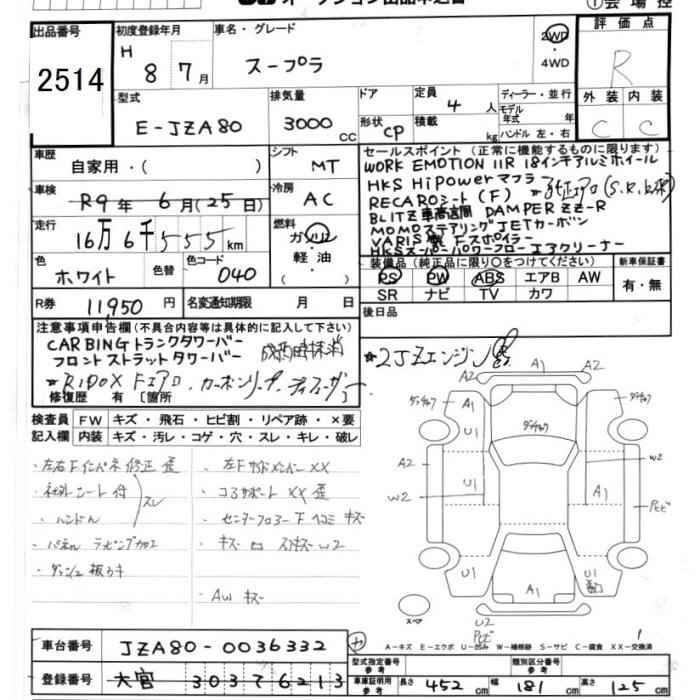 出品番号
2514
初度登録年月
H 8 7月
車名・グレード
スープラ
2WD
・
4WD
評価点
R
外装 内装
C C
型式
E-JZA80
排気量
3000 CC
ドア
形状 CP
定員 4 人
積載 kg
ディーラー・並行
モデル
年式 年
ハンドル 左・右
車歴
自家用・( )
シフト
MT
車検
R9年 6月(25日)
冷房
AC
走行
16万6千555km
燃料
ガソリン
軽油
( )
色
ホワイト
色替
色コード
040
R券
11,950円
名変通知期限 月 日
セールスポイント(正常に機能するものに限ります)
WORK EMOTION 11R 18インチアルミホイール
HKS HiPowerマフラー
RECAROシート(F)
BLITZ車高調 DAMPER ZZ-R
MOMOステアリング JETカーボン
VARIS製 Fスポイラー
HKSスーパーパワーフローエアクリーナー
装備品(純正品に限り○をつけてください)
PS PW ABS エアB AW
SR ナビ TV カワ
新車保証書
有・無
後日品
注意事項申告欄(不具合内容等は具体的に記入して下さい)
CARBINGトランクタワーバー
フロントストラットタワーバー
☆RIDOX Fエアロ、カーボンリップ、ディフューザー
修復歴 有〔箇所 〕
☆2JZエンジン
検査員
記入欄
FW キズ・飛石・ヒビ割・リペア跡・×要
内装 キズ・汚レ・コゲ・穴・スレ・キレ・破レ
・左右Fインパネ修正 歪
・左Fサイドメンバー XX
・コアサポート XX 歪
・センターフロアー下 ヘコミ キズ
・ハンドル
スレ
・パネル ラッピング加工
・AW キズ
A2 A1 A2
A1
U1
A2
W2
U1
U1
A1
W2
A1
U1
U2
スペア
A-キズ E-エクボ U-凹み W-補修跡 S-サビ C-腐食 XX-交換済
車台番号
JZA80-0036332
登録番号
大宮 303 7 6213
型式指定番号
参考
類別区分番号
参考
車庫証明用
参考
長さ 452 cm 幅 181 cm 高さ 125 cm